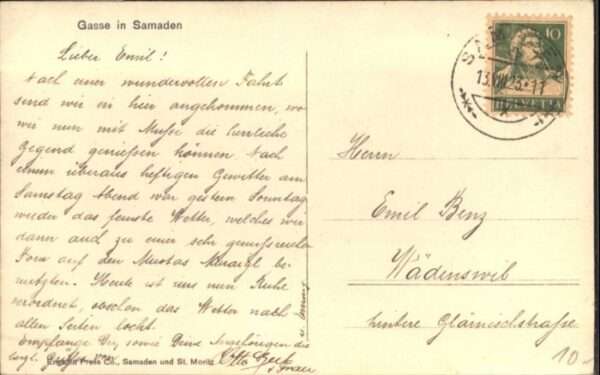 Gasse in Samaden
Lieber Emil!
Nach einer wundervollen Fahrt
sind wir in hier angekommen, wo
wir nun mit Muße die herrliche
Gegend genießen können. Nach
einem überaus heftigen Gewitter am
Samstag Abend war gestern Sonntag
wieder das feinste Wetter, welches wir
dann auch zu einer sehr genussreichen
Tour auf den Muottas Muraigl be-
nutzten. Heute ist uns nun Ruhe
verordnet, obschon das Wetter nach
allen Seiten lockt.
Empfange Du, sowie Deine Angehörigen die
herzl. Grüße von
Otto
Engadin Press Co., Samaden und St. Moritz
10
HELVETIA
Herrn
Emil Benz
Wädenswil
hintere Glärnischstraße
10.-